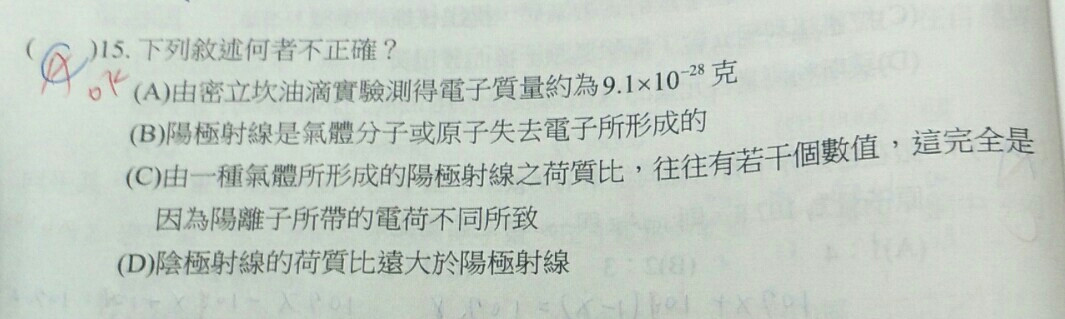 ( A )15. 下列敘述何者不正確？
ok (A)由密立坎油滴實驗測得電子質量約為9.1×10⁻²⁸ 克
(B)陽極射線是氣體分子或原子失去電子所形成的
(C)由一種氣體所形成的陽極射線之荷質比，往往有若干個數值，這完全是
因為陽離子所帶的電荷不同所致
(D)陰極射線的荷質比遠大於陽極射線